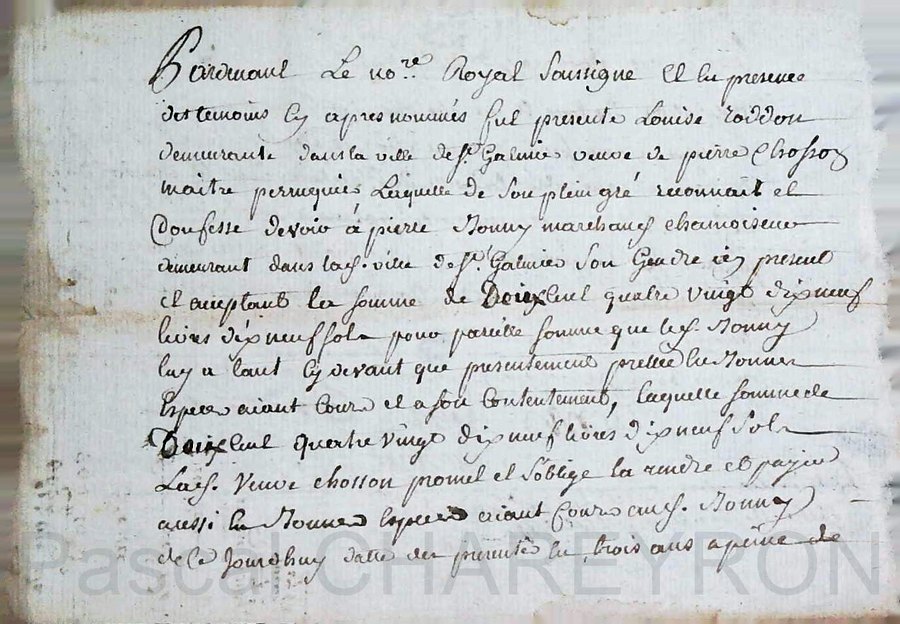 Pardevant Le no.re Royal Soussigne Et en presence
des temoins cy apres nommés fut presente Louise roddon
demeurante dans la ville de St. Galmier veuve de pierre Chosson
maitre perruquier, Laquelle de son plein gré reconnait et
Confesse devoir à pierre Monny marchand chamoiseur
demeurant dans lad. ville de St. Galmier Son Gendre icy present
et acceptant la somme de Deux Cent quatre vingt dix neuf
livres dix neuf sols pour pareille somme que led. Monny
luy a tant cy devant que presentement prettée en Bonnes
Especes aiant Cours et a son Contentement, laquelle somme de
Deux Cent quatre vingt dix neuf livres dix neuf sols
Lad. Veuve chosson promet et s'oblige la rendre et payer
aussi en Bonnes Especes aiant Cours aud. Monny
de ce Jourdhuy datte des presentes en trois ans a peine de
Pascal CHAREYRON